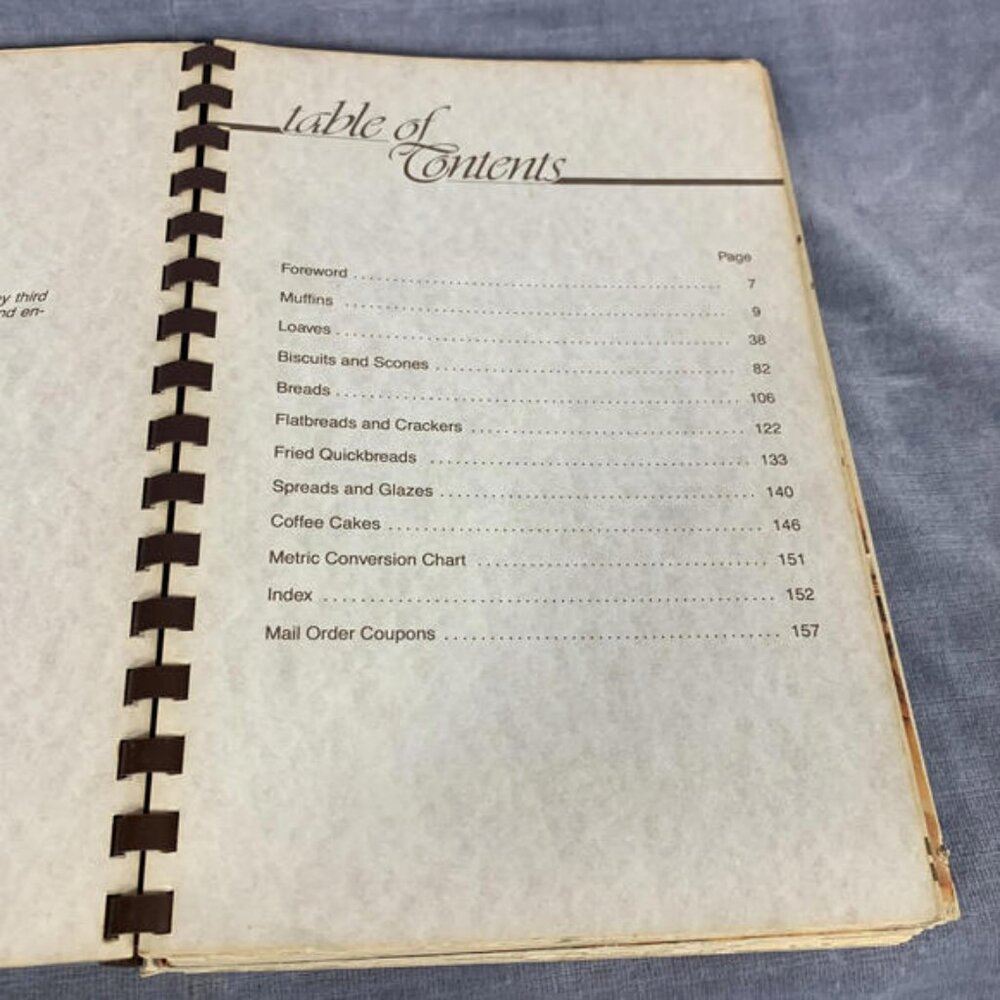 y third
nd en-
table of
Contents
Page
Foreword 7
Muffins 9
Loaves 38
Biscuits and Scones 82
Breads 106
Flatbreads and Crackers 122
Fried Quickbreads 133
Spreads and Glazes 140
Coffee Cakes 146
Metric Conversion Chart 151
Index 152
Mail Order Coupons 157